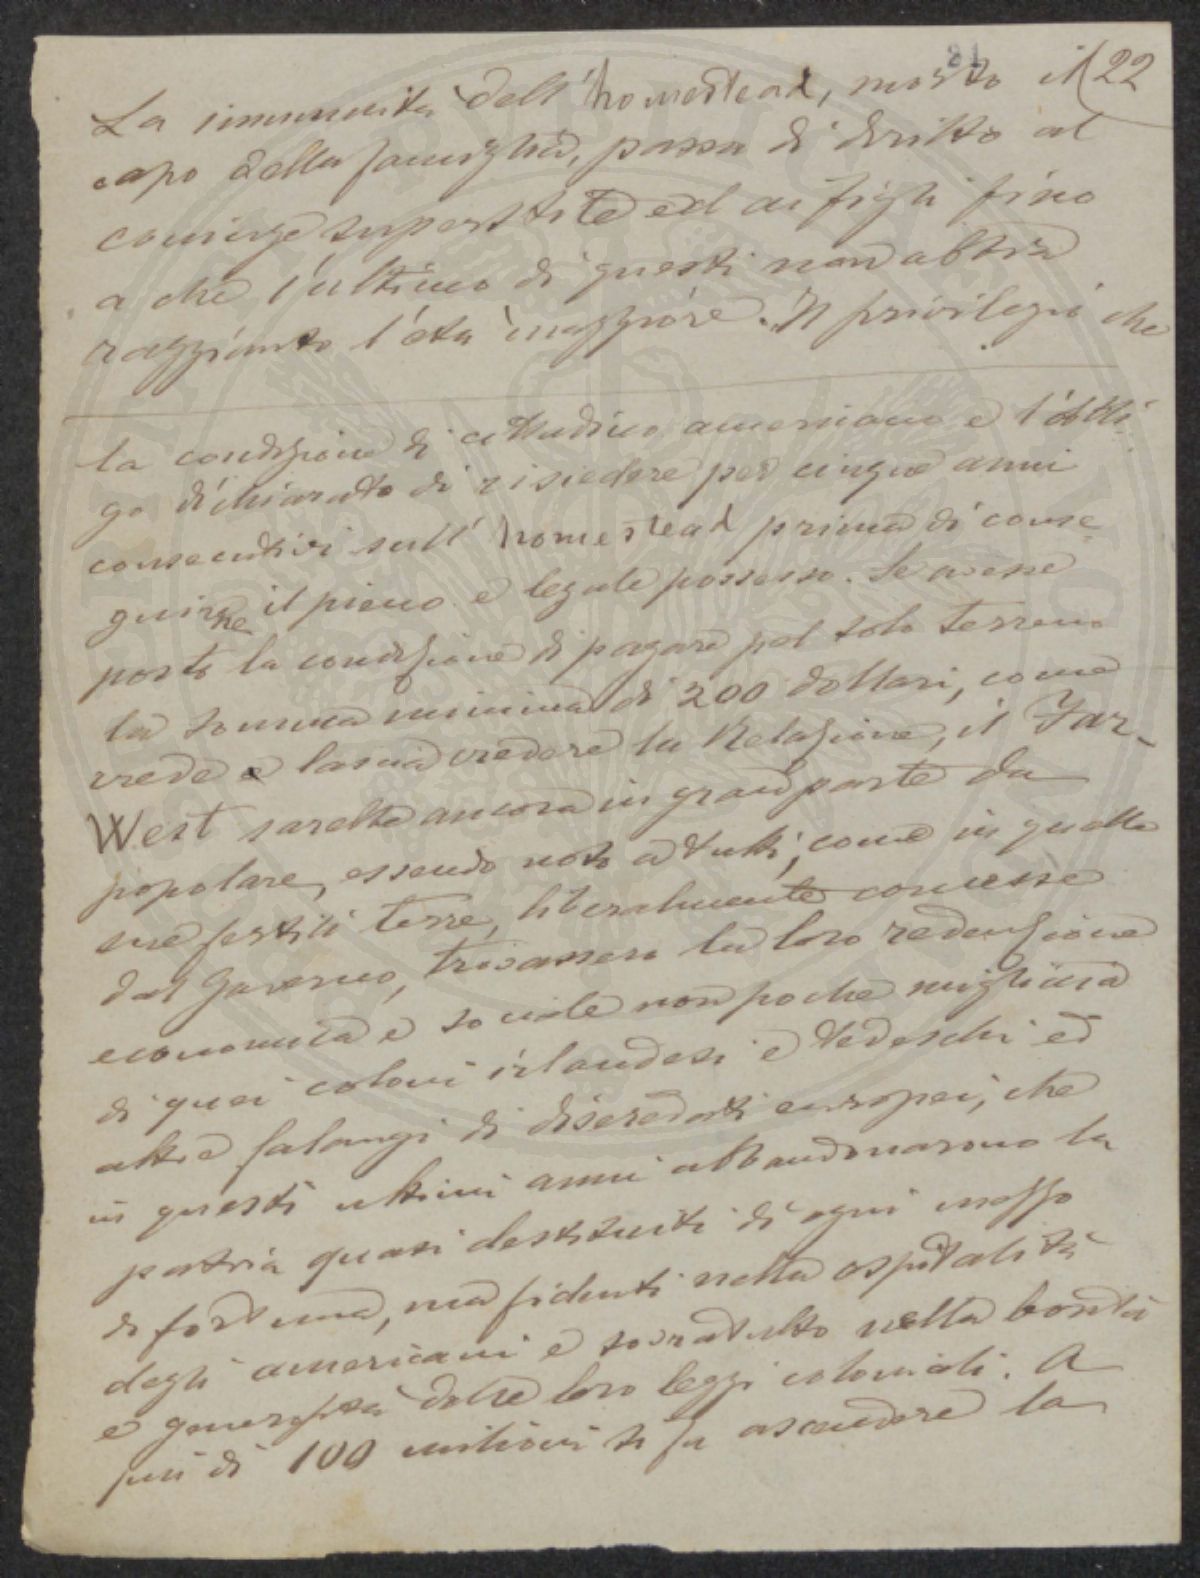 81
La immunità dell'homestead, morto il (22
capo della famiglia, passa di diritto al
coniuge superstite ed ai figli fino
a che l'ultimo di questi non abbia
raggiunto l'età maggiore. I privilegi che
la condizione di cittadino americano e l'obbli
go dichiarato di risiedere per cinque anni
consecutivi sull'homestead prima di conse
guirne il pieno e legale possesso. Se avesse
posto la condizione di pagare pel solo terreno
la somma minima di 200 dollari, come
crede e lascia credere la Relazione, il Far-
West sarebbe ancora in gran parte da
popolare, essendo noto a tutti, come in quelle
fertili terre, liberalmente concesse
dal Governo, trovassero la loro redenzione
economica e sociale non poche migliaia
di quei coloni irlandesi e tedeschi ed
altre falangi di diseredati europei, che
in questi ultimi anni abbandonarono la
patria quasi destituiti di ogni mezzo
di fortuna, ma fidenti nella ospitalità
degli americani e sovratutto nella bontà
e generosità delle loro leggi coloniali. A
più di 100 milioni si fa ascendere la